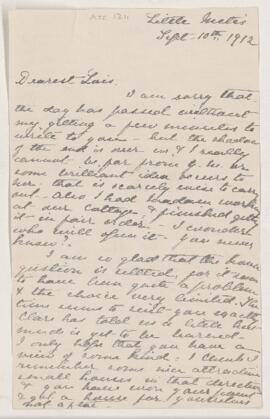 Little Metis
Sept. 10th, 1912
Dearest Lois.
I am sorry that
the day has passed without
my getting a few minutes to
write to you - but the shadow
of the end is over us & I really
cannot - be far from
some brilliant idea occurs to
her - that is scarcely wise to carry
out. Also I had shadow work
at our cottage & finished getting
it - in fair order. I wonder
who will open it - you never
know!
I am so glad that the house
question is settled, for it seems
to have been quite a problem
& the choice very limited.
seems to suit you exactly
Clare has told us a little but
much is yet to be learned
I only hope that you have a
view of some kind. I
remember some nice attractive
small houses in that direction
& you have own your
& get a house for yourselves
not a flat.